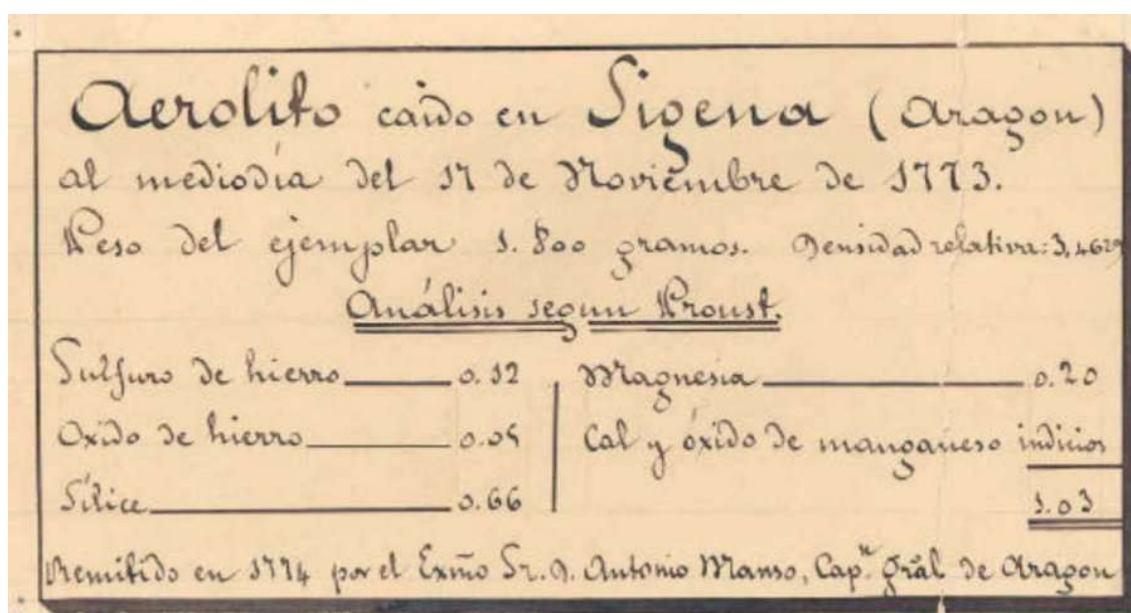 Aerolito caído en Sigena (Aragon)
al mediodía del 17 de Noviembre de 1773.
Peso del ejemplar 1.800 gramos. Densidad relativa:
Análisis segun Proust.
Sulfuro de hierro 0.12 Magnesia 0.20
Oxido de hierro 0.05 Cal y óxido de manganeso indicios
Sílice 0.66 1.03
Remitido en 1774 por el Exmo Sr. D. Antonio Manso, Cap.n Gral de Aragon